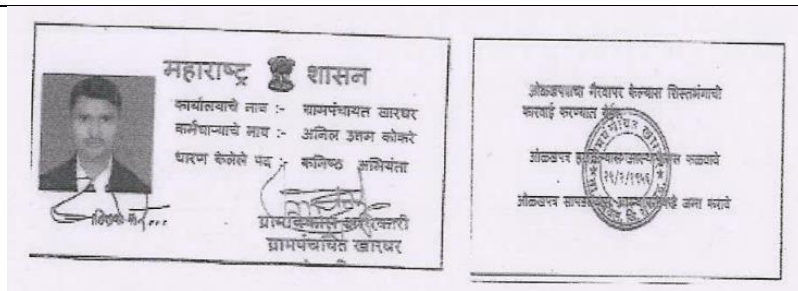 महाराष्ट्र शासन
कार्यालयाचे नाव :- ग्रामपंचायत खारघर
कर्मचाऱ्याचे नाव :- अनिल उत्तम कोकरे
धारण केलेले पद :- कनिष्ठ अभियंता
ग्रामविकास अधिकारी
ग्रामपंचायत खारघर
ओळखपत्राचा गैरवापर केल्यास शिस्तभंगाची
कारवाई करण्यात येईल
ओळखपत्र हरविल्यास कळवावे
ओळखपत्र जमा करावे